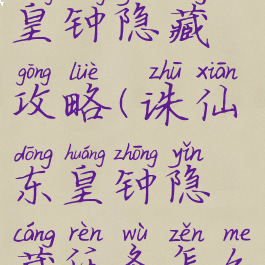 皇钟隐藏
gōng lüè zhū xiān
攻略(诛仙
dōng huáng zhōng yǐn
东皇钟隐
cáng rèn wù zěn me
藏任务怎么